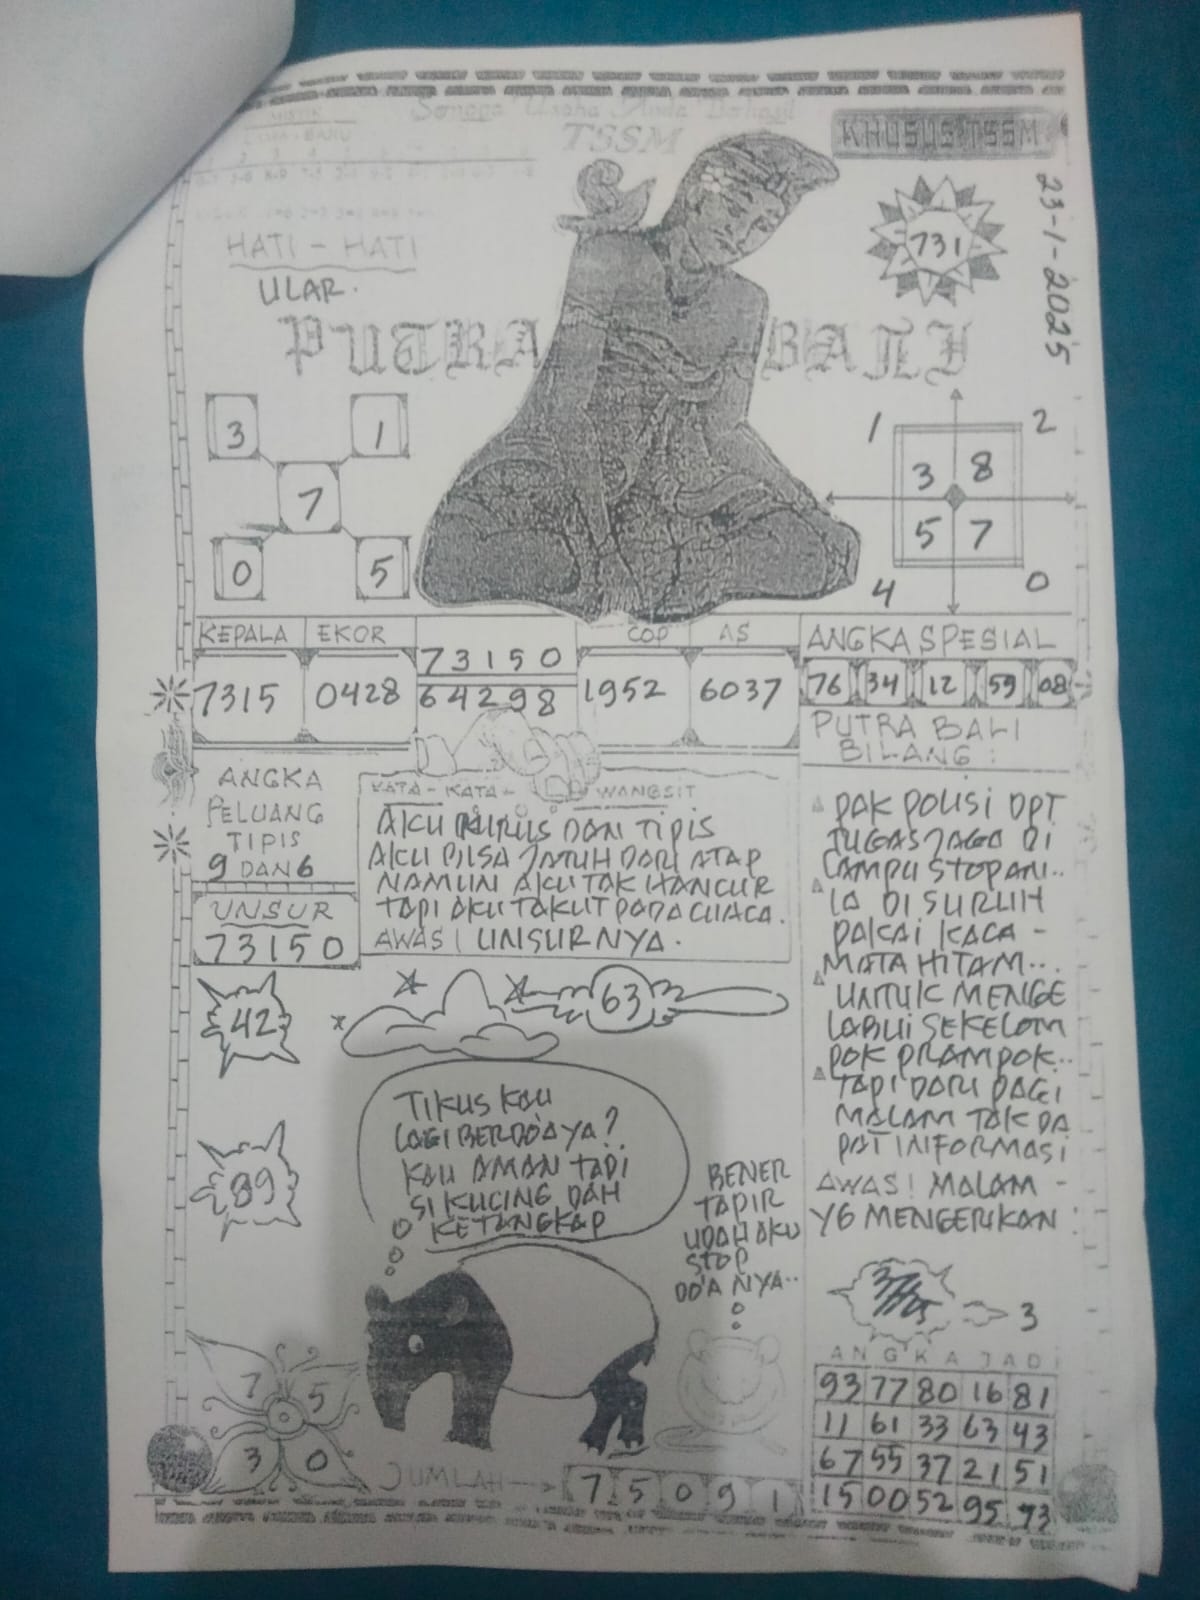 Semoga Usaha Anda Berhasil
TSSM
KHUSUS TSSM
23-1-2025
MISTIK
HATI - HATI
ULAR.
731
PUTRA BALI
3 1
7
0 5
1 2
3 8
5 7
4 0
KEPALA EKOR COP AS
7315 0428 73150 1952 6037
64298
ANGKA SPESIAL
76 34 12 59 08
ANGKA
PELUANG
TIPIS
9 DAN 6
UNSUR
73150
KATA - KATA - WANGSIT
AKU KURUS DAN TIPIS
AKU BISA JATUH DARI ATAP
NAMUN AKU TAK HANCUR
TAPI AKU TAKUT PADA CUACA.
AWAS! UNSURNYA.
PUTRA BALI
BILANG :
PAK POLISI DPT
TUGAS JAGA DI
LAMPU STOPAN..
IA DI SURUH
PAKAI KACA -
MATA HITAM...
UNTUK MENGE
LABUI SEKELOM
POK PRAMPOK..
TAPI DARI PAGI
MALAM TAK DA
PAT INFORMASI
AWAS! MALAM -
YG MENGERIKAN
42
63
89
TIKUS KAU
LAGI BERDO'A YA?
KAU AMAN TAPI
SI KUCING DAH
KETANGKAP
BENER
TAPIR
UDAH AKU
STOP
DO'A NYA..
3
7 5
3 0
JUMLAH
7 5 0 9 1
ANGKA JADI
93 77 80 16 81
11 61 33 63 43
67 55 37 21 51
15 00 52 95 73